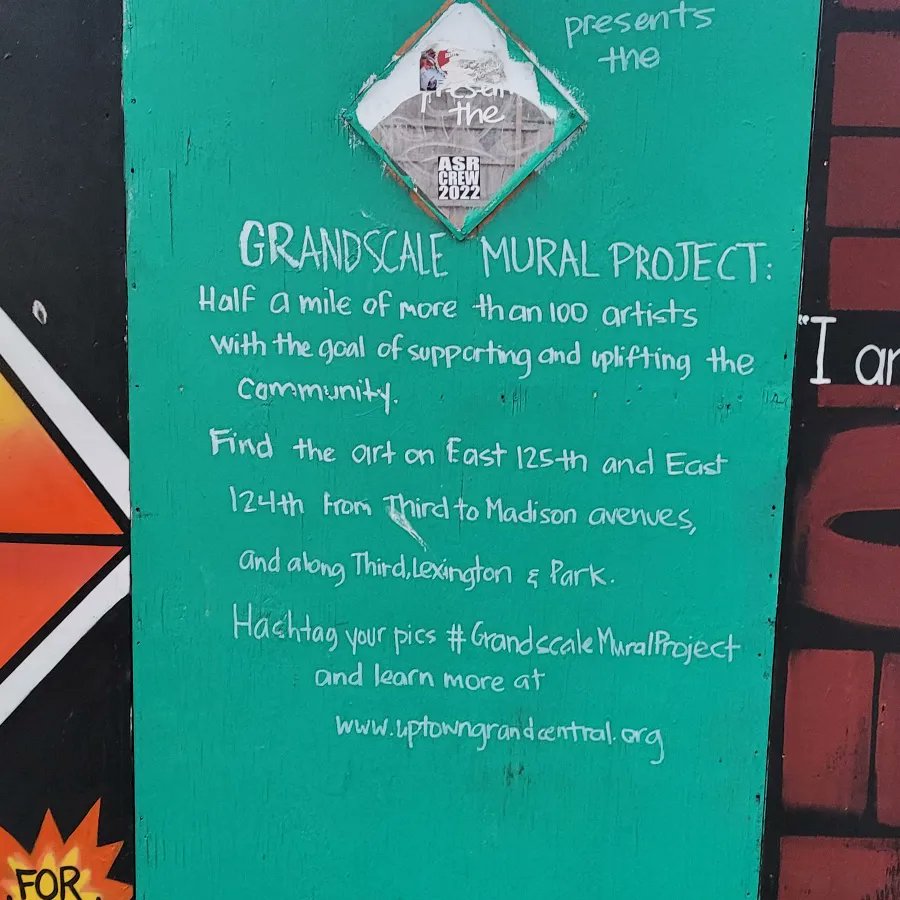 presents
the
the
ASR
CREW
2022
GRANDSCALE MURAL PROJECT:
Half a mile of more than 100 artists
with the goal of supporting and uplifting the
community.
Find the art on East 125th and East
124th from Third to Madison avenues,
and along Third, Lexington & Park.
Hashtag your pics #GrandscaleMuralProject
and learn more at
www.uptowngrandcentral.org
"I
FOR